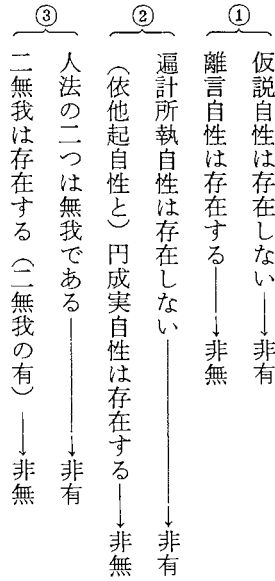 ①
仮説自性は存在しない──→非有
離言自性は存在する──→非無
②
遍計所執自性は存在しない──→非有
（依他起自性と）円成実自性は存在する─→非無
③
人法の二つは無我である──→非有
二無我は存在する（二無我の有）─→非無